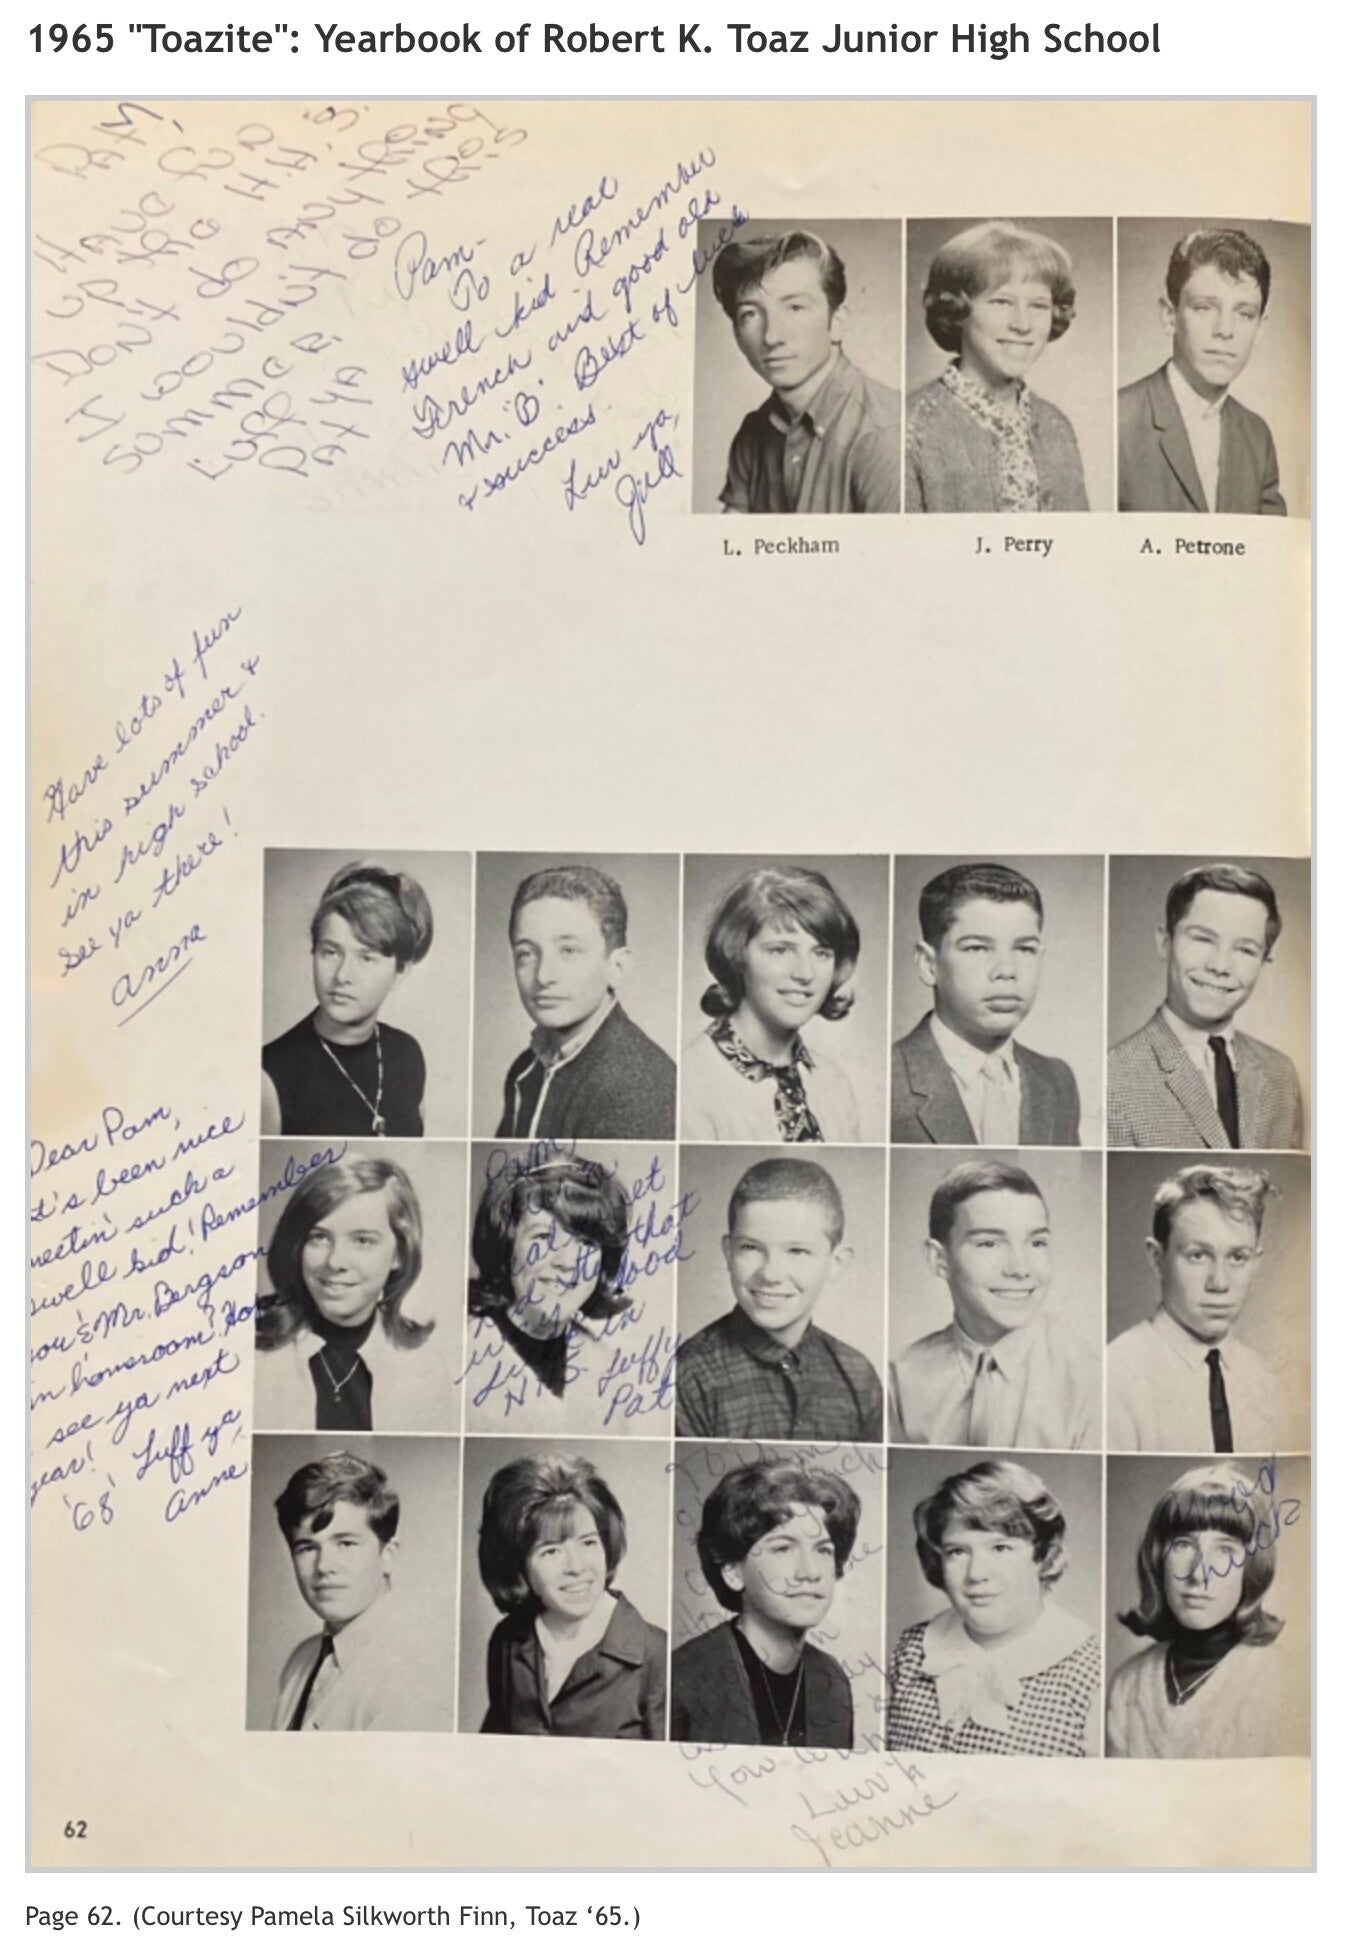 1965 "Toazite": Yearbook of Robert K. Toaz Junior High School
PAty!
HAVE fun
up tho H.H.S.
DON't do ANything
I wouldn't do this
summer.
Luff
PAtyA
Pam-
To a real
swell kid. Remember
French and good old
Mr. "B". Best of luck
& success.
Luv ya,
Jill
L. Peckham
J. Perry
A. Petrone
Have lots of fun
this summer &
in high school.
See ya there!
Anna
Dear Pam,
It's been nice
meetin' such a
swell kid! Remember
you & Mr. Bergson
in homeroom? Hope
see ya next
year!
'68' Luff ya,
Anne
Pam
that
good
in
H.H.S. Luffy
Pat
To Pam
luck
You
Luv 'n
Jeanne
Good
luck
62
Page 62. (Courtesy Pamela Silkworth Finn, Toaz ‘65.)